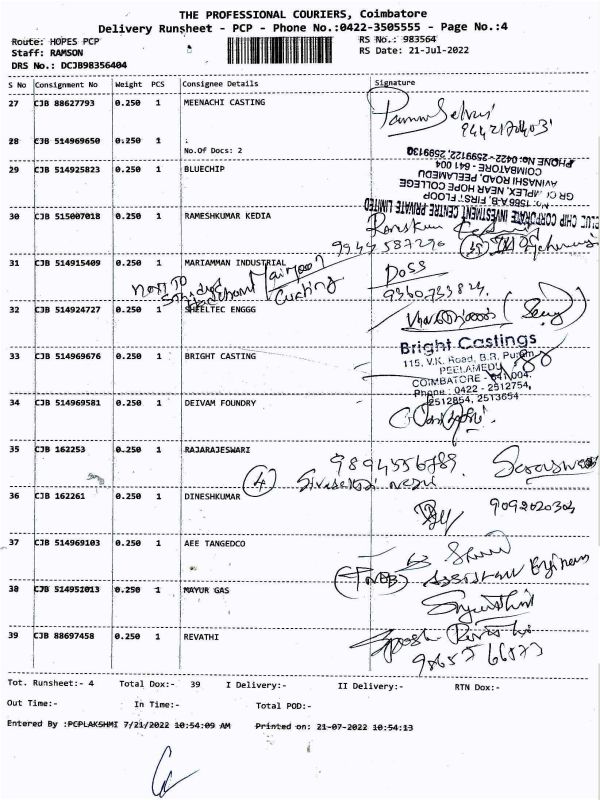 THE PROFESSIONAL COURIERS, Coimbatore
Delivery Runsheet - PCP - Phone No.:0422-3505555 - Page No.:4
Route: HOPES PCP
RS No.: 983564
Staff: RAMSON
RS Date: 21-Jul-2022
DRS No.: DCJB98356404
S No Consignment No Weight PCS Consignee Details Signature
27 CJB 88627793 0.250 1 MEENACHI CASTING
28 CJB 514969650 0.250 1 .
No.Of Docs: 2
PHONE No: 0422 - 2599122, 2599130
COIMBATORE - 641 004
AVINASHI ROAD, PEELAMEDU
NEAR HOPE COLLEGE
FIRST FLOOR
CHIP CORPORATE INVESTMENT CENTRE PRIVATE LIMITED
29 CJB 514925823 0.250 1 BLUECHIP
30 CJB 515007018 0.250 1 RAMESHKUMAR KEDIA
31 CJB 514915409 0.250 1 MARIAMMAN INDUSTRIAL
Doss
32 CJB 514924727 0.250 1 SHEELTEC ENGGG
33 CJB 514969676 0.250 1 BRIGHT CASTING
Bright Castings
115, V.K. Road, B.R. Puram,
PEELAMEDU
COIMBATORE - 641 004.
Phone : 0422 - 2512754,
2512854, 2513654
34 CJB 514969581 0.250 1 DEIVAM FOUNDRY
35 CJB 162253 0.250 1 RAJARAJESWARI
9894556789
4
36 CJB 162261 0.250 1 DINESHKUMAR
9092020304
37 CJB 514969103 0.250 1 AEE TANGEDCO
38 CJB 514951013 0.250 1 MAYUR GAS
39 CJB 88697458 0.250 1 REVATHI
Tot. Runsheet:- 4 Total Dox:- 39 I Delivery:- II Delivery:- RTN Dox:-
Out Time:- In Time:- Total POD:-
Entered By :PCPLAKSHMI 7/21/2022 10:54:09 AM Printed on: 21-07-2022 10:54:13